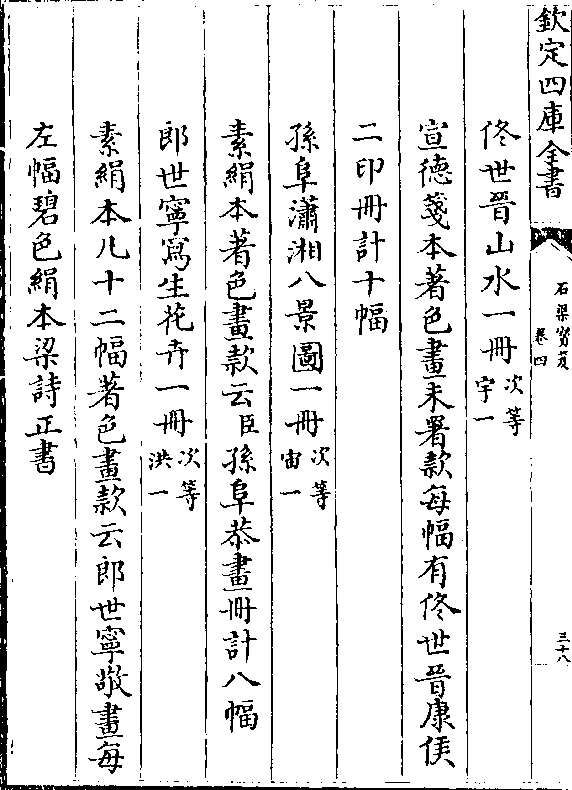 欽定四庫全書
石渠寳笈
卷四
三十八
佟世晉山水一冊次等
宇一
宣德箋本著色畫未署款每幅有佟世晉康侯
二印冊計十幅
孫阜瀟湘八景圖一冊次等
宙一
素絹本著色畫款云臣孫阜恭畫冊計八幅
郎世寧寫生花卉一冊次等
洪一
素絹本凡十二幅著色畫款云郎世寧敬畫每
左幅碧色絹本梁詩正書